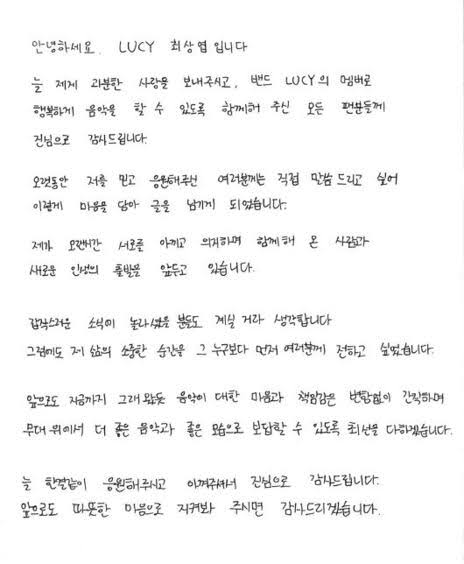 안녕하세요. LUCY 최상엽입니다
늘 제게 과분한 사랑을 보내주시고, 밴드 LUCY의 멤버로
행복하게 음악을 할 수 있도록 함께해 주신 모든 팬분들께
진심으로 감사드립니다.
오랫동안 저를 믿고 응원해주신 여러분께는 직접 말씀드리고 싶어
이렇게 마음을 담아 글을 남기게 되었습니다.
제가 오랜시간 서로를 아끼고 의지하며 함께해 온 사람과
새로운 인생의 출발을 앞두고 있습니다.
갑작스러운 소식이 놀라셨을 분들도 계실 거라 생각합니다
그럼에도 제 삶의 소중한 순간을 그 누구보다 먼저 여러분께 전하고 싶었습니다.
앞으로도 지금까지 그래 왔듯 음악이 대한 마음과 책임감은 변함없이 간직하며
무대 위에서 더 좋은 음악과 좋은 모습으로 보답할 수 있도록 최선을 다하겠습니다.
늘 한결같이 응원해주시고 아껴주셔서 진심으로 감사드립니다.
앞으로도 따뜻한 마음으로 지켜봐 주시면 감사드리겠습니다.